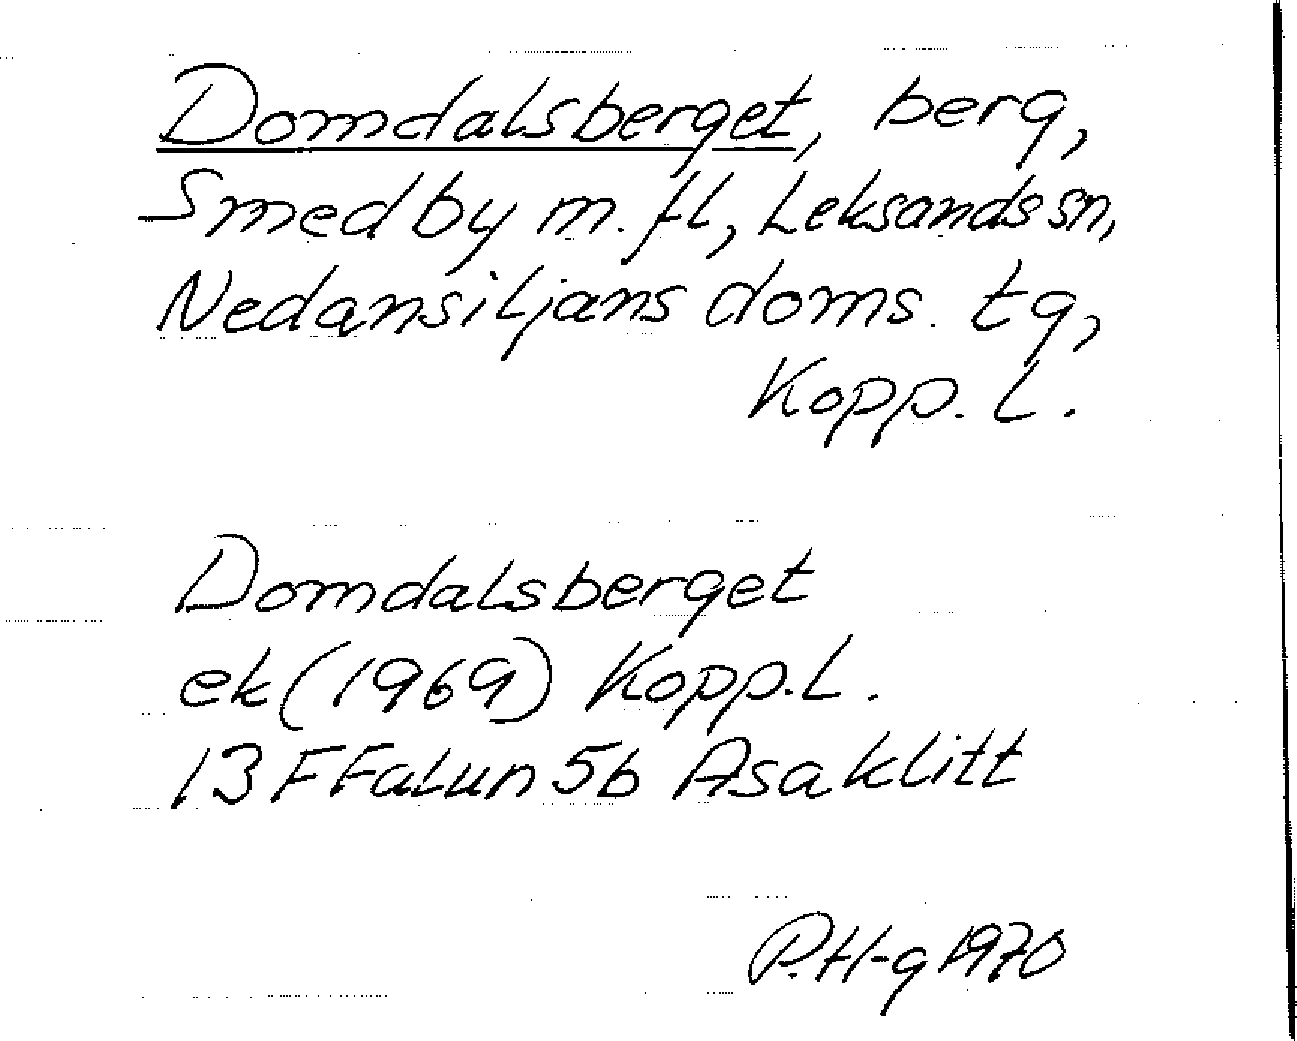 Domdalsberget, berg,
Smedby m. fl, Leksands sn,
Nedansiljans doms. tg,
Kopp. L.
Domdalsberget
ek (1969) Kopp. L.
13 F Falun 5b Asaklitt
P. H-g 1970